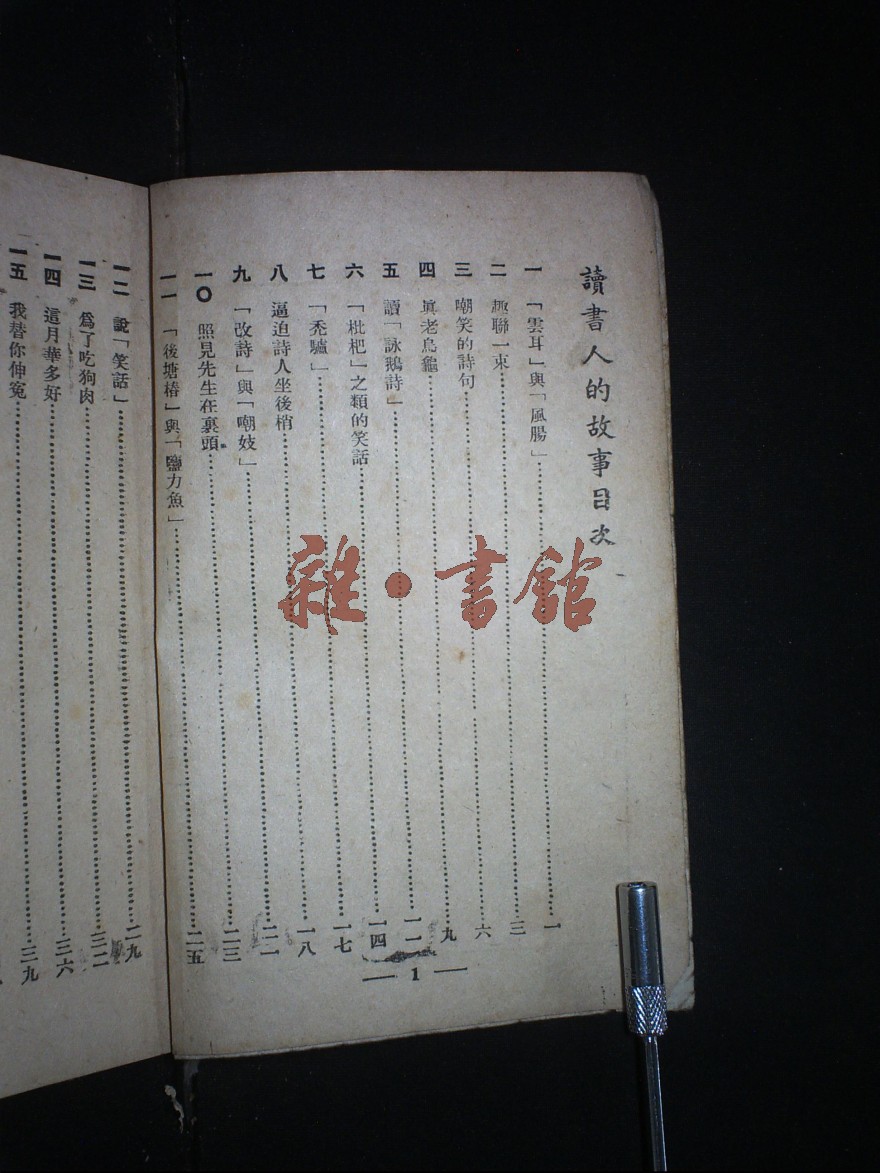 讀書人的故事目次
一 「雲耳」與「風腸」……一
二 趣聯一束……三
三 嘲笑的詩句……六
四 眞老烏龜……九
五 讀「詠鵝詩」……一一
六 「枇杷」之類的笑話……一四
七 「禿驢」……一七
八 逼迫詩人坐後梢……一八
九 「改詩」與「嘲妓」……二一
一〇 照見先生在裏頭……二三
一一 「後塘椿」與「鹽力魚」……二五
— 1 —
一二 說「笑話」……二九
一三 爲了吃狗肉……三二
一四 這月華多好……三六
一五 我替你伸冤……三九
雜·書館